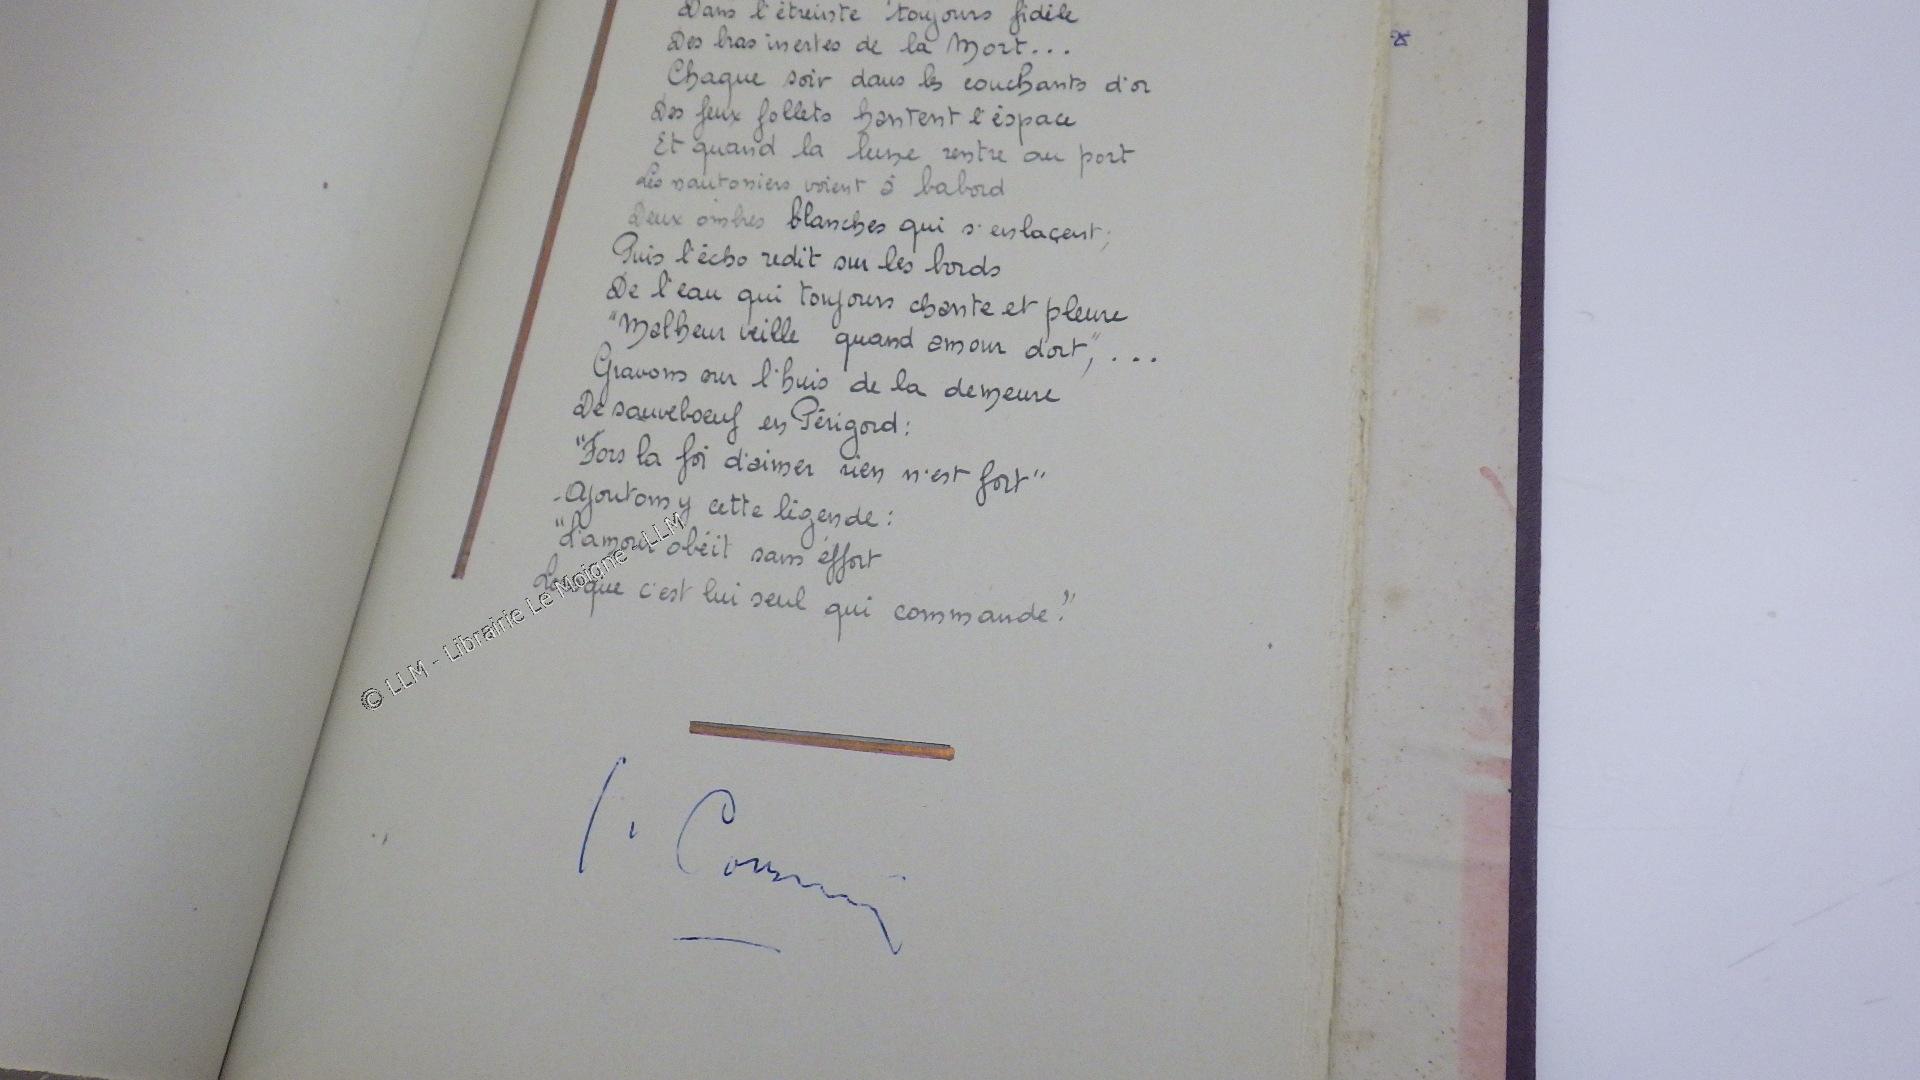 Dans l'étreinte toujours fidèle
Des bras inertes de la Mort...
Chaque soir dans les couchants d'or
Des feux follets hantent l'éspace
Et quand la lune rentre au port
Les nautoniers voient à babord
Deux ombres blanches qui s'enlaçent;
Puis l'écho redit sur les bords
De l'eau qui toujours chante et pleure
"Malheur veille quand amour dort", ...
Gravons sur l'huis de la demeure
De sauveboeuf en Périgord:
"Fors la foi d'aimer rien n'est fort"
-Ajoutons y cette légende:
"L'amour obéit sans éffort
Lorsque c'est lui seul qui commande."
© LLM - Librairie Le Moigne - LLM